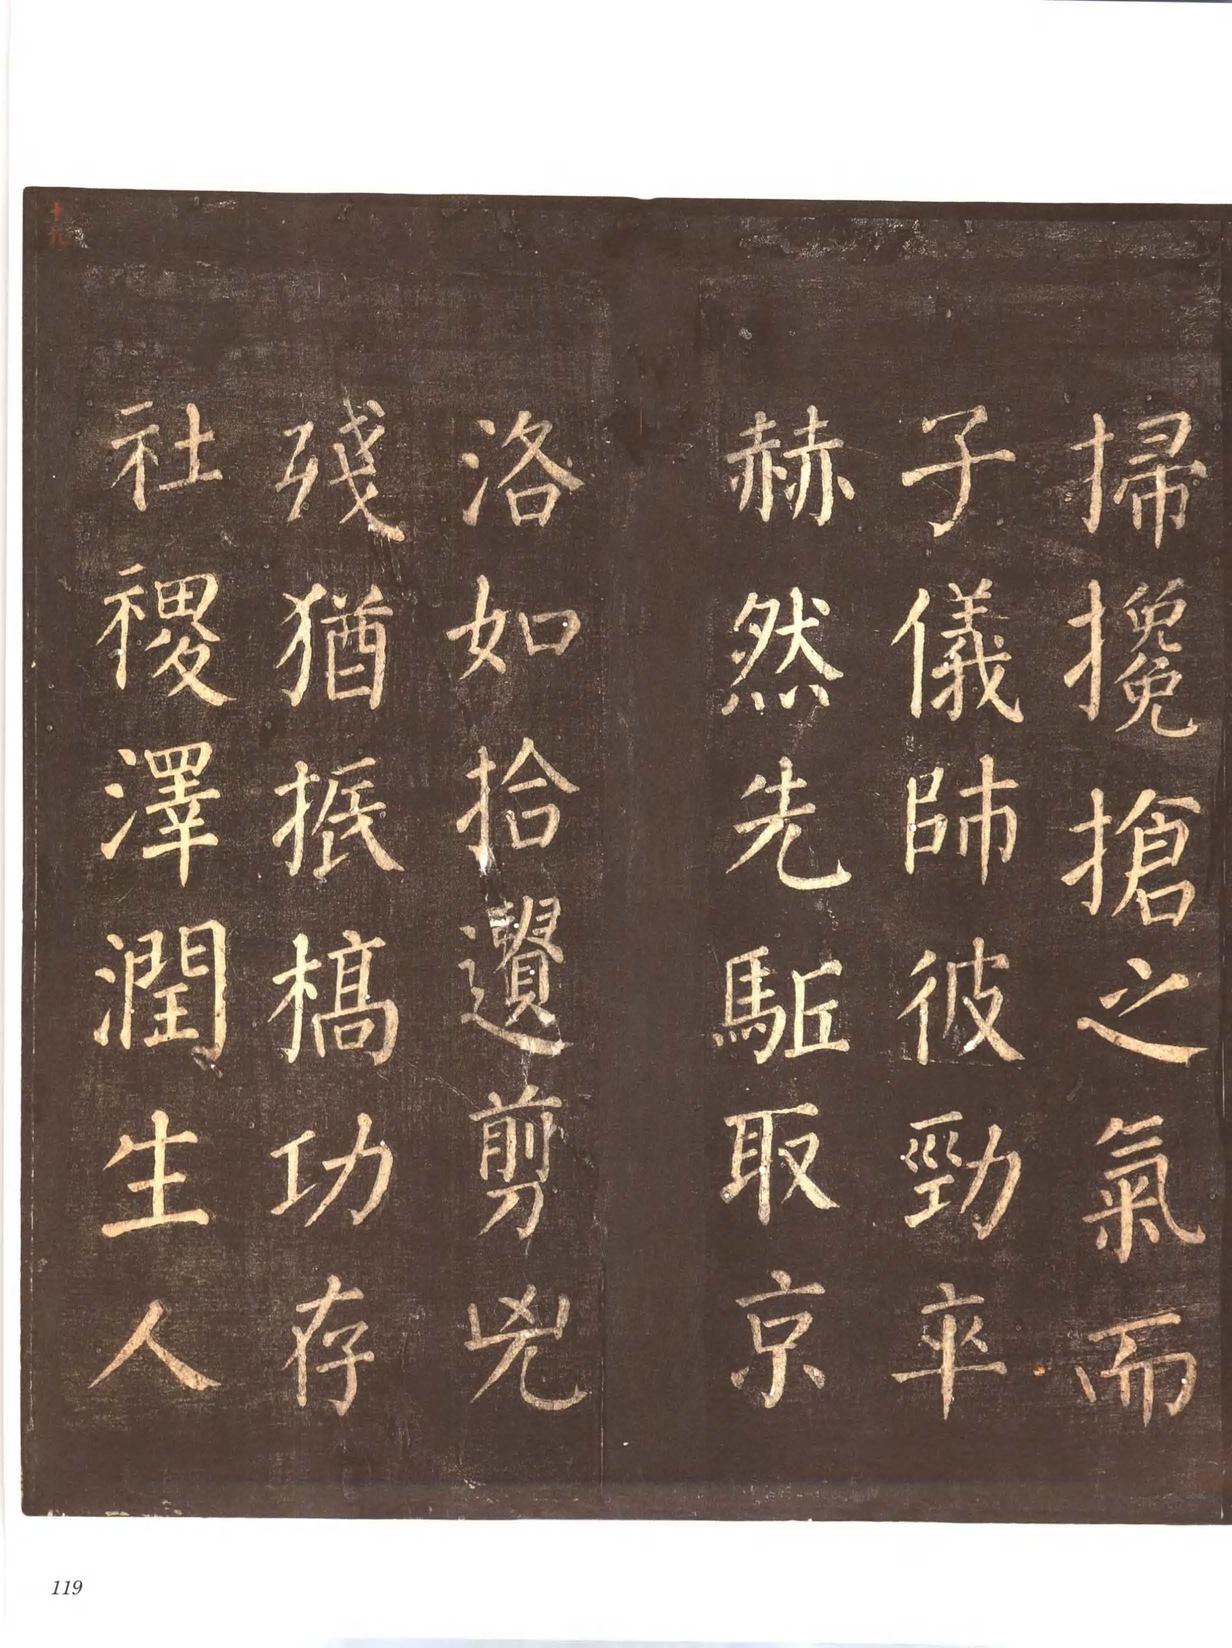 掃攙搶之氣而
子儀帥彼勁卒
赫然先駈取京
洛如拾遺剪兇
殘猶振槁功存
社稷澤潤生人
十九
119